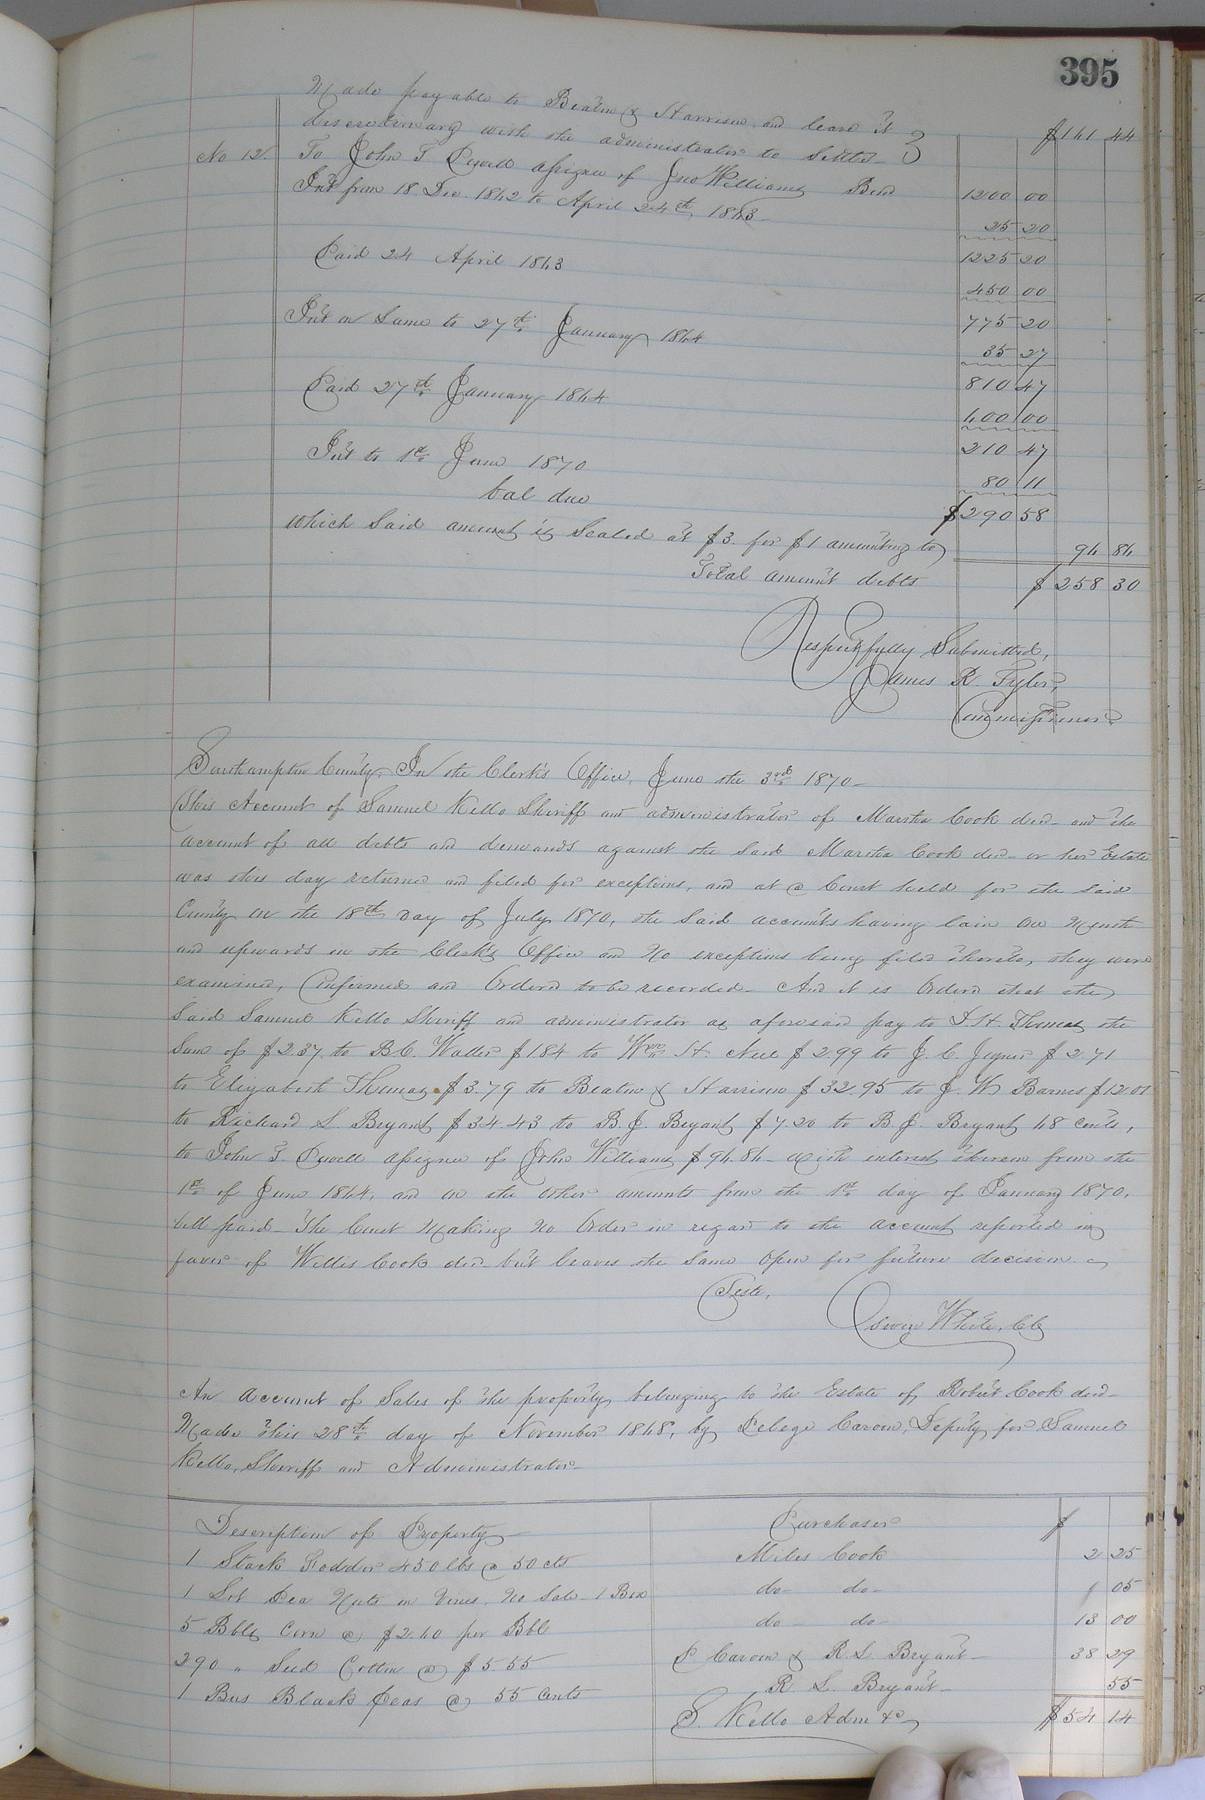 395
Made payable to Beaton & Harrison and leave it
discretionary with the administrator to settle } $161 44
No 12. To John T. Powell assignee of Jno Williams Bond 1200 00
Int from 18 Dec. 1862 to April 24th, 1863 25 20
1225 20
Paid 24 April 1863 450 00
775 20
Int on Same to 27th January 1864 35 27
810 47
Paid 27th January 1864 600 00
210 47
Int to 1st June 1870 80 11
bal due $290 58
which said amount is Scaled at $3. for $1 amounting to 96 86
Total amount debts $258 30
Respectfully Submitted,
James R. Tyler,
Commissioner
Southampton County, In the Clerk's Office, June the 3rd 1870
This Account of Samuel Kello Sheriff and administrator of Martha Cook decd and the
account of all debts and demands against the said Martha Cook decd or her Estate
was this day returned and filed for exceptions, and at a Court held for the said
County on the 18th day of July 1870, the said accounts having lain one Month
and upwards in the Clerk's Office and No exceptions being filed thereto, they were
examined, Confirmed and Ordered to be recorded. And it is Ordered that the
said Samuel Kello Sheriff and administrator as aforesaid pay to J. H. Thomas the
Sum of $2.37, to B. C. Waller $1.84 to Wm H. Nee $2.99 to J. C. Joyner $2.71
to Elizabeth Thomas $3.79 to Beaton & Harrison $32.95 to J. W. Barnes $12.01
to Richard S. Bryant $34.43 to B. J. Bryant $7.20 to B. J. Bryant 68 cents,
to John T. Powell assignee of John Williams $96.86 with interest thereon from the
1st of June 1864, and on the other amounts from the 1st day of January 1870,
till paid. The Court Making No Order in regard to the account reported in
favor of Willis Cook decd but leaves the same open for future decision
Teste,
Edwin White, Clk
An account of Sales of the property belonging to the Estate of Robert Cook decd
Made this 28th day of November 1868, by Carown, Deputy for Samuel
Kello, Sheriff and Administrator
Description of Property Purchaser $
1 Stack Fodder 450 lbs @ 50 cts Miles Cook 2 25
1 Lot Pea Nuts on Vines, No Sale 1 Box do do 05
5 Bbls Corn @ $2.60 per Bbl do do 13 00
290 " Seed Cotton @ $5.55 P Carown & R. S. Bryant 38 29
1 Bus Black Peas @ 55 cents R. S. Bryant 55
S. Kello Adm &c $54 14